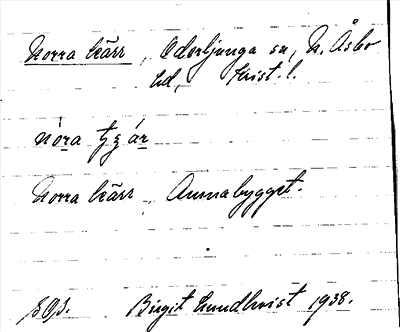 Norra kärr, Oderljunga sn, N. Åsbo
hd, Krist. l.
Norra kärr, Annabygget.
Birgit Lundkvist 1938.